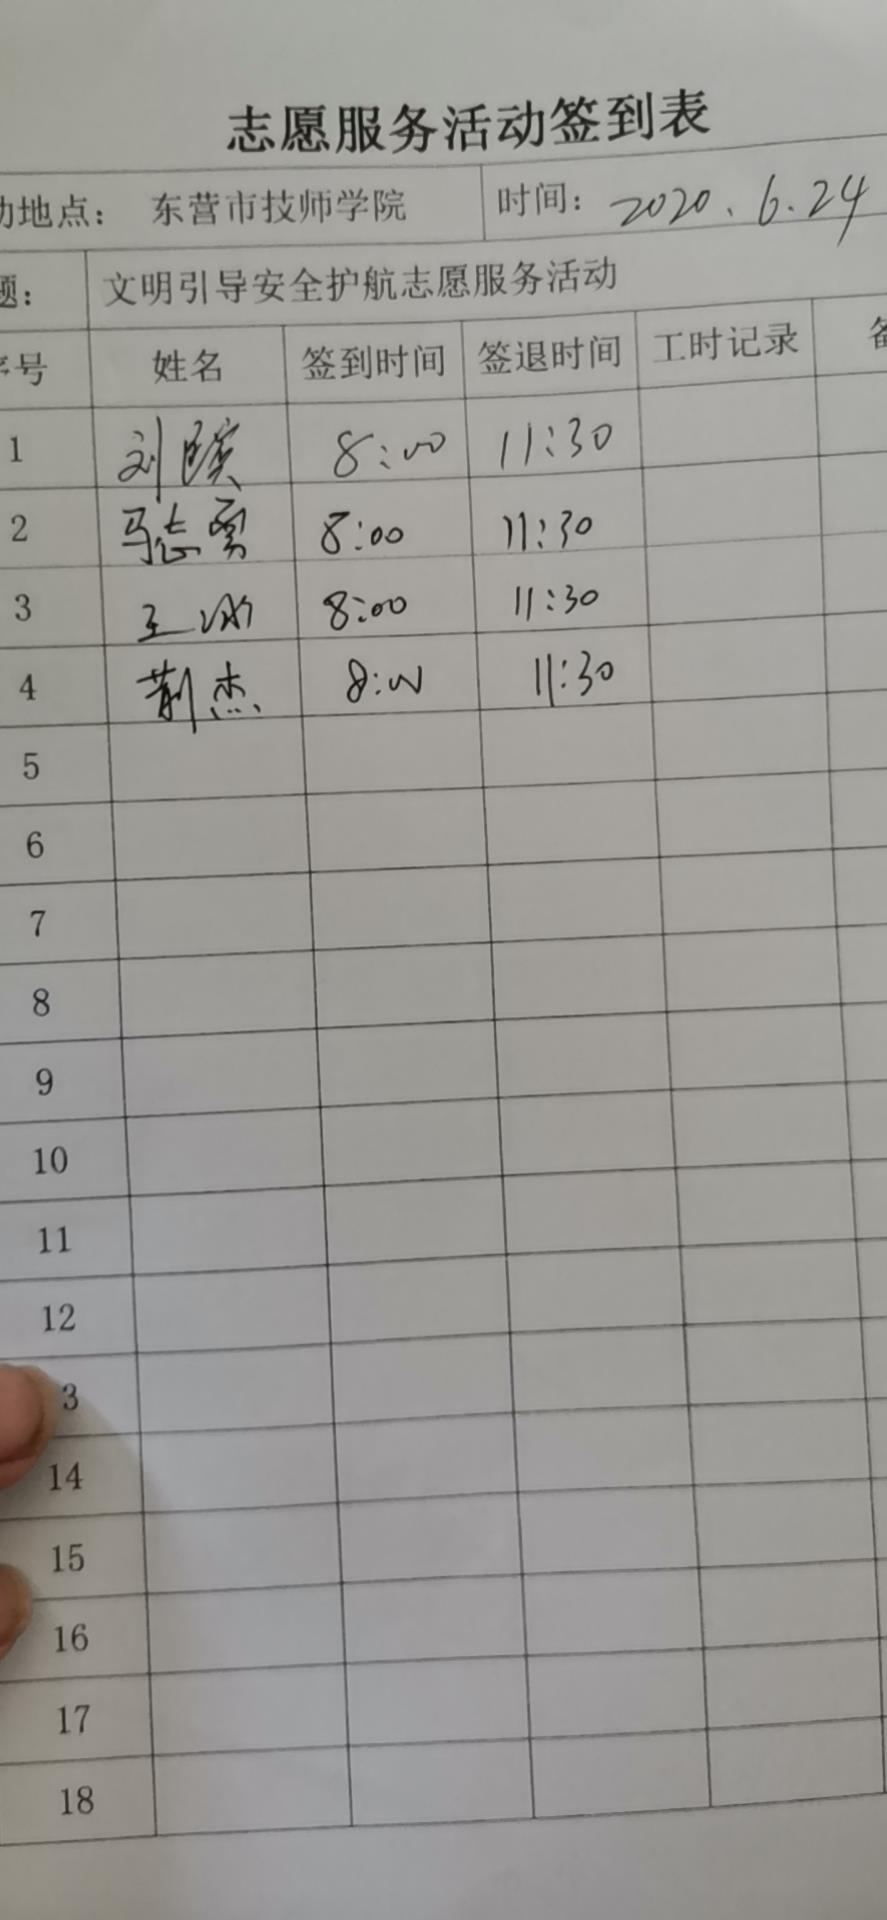 志愿服务活动签到表
动地点： 东营市技师学院 时间：2020.6.24
题： 文明引导安全护航志愿服务活动
序号 姓名 签到时间 签退时间 工时记录 备
1 刘 8:00 11:30
2 马志勇 8:00 11:30
3 王冰 8:00 11:30
4 荆杰 8:00 11:30
5
6
7
8
9
10
11
12
3
14
15
16
17
18